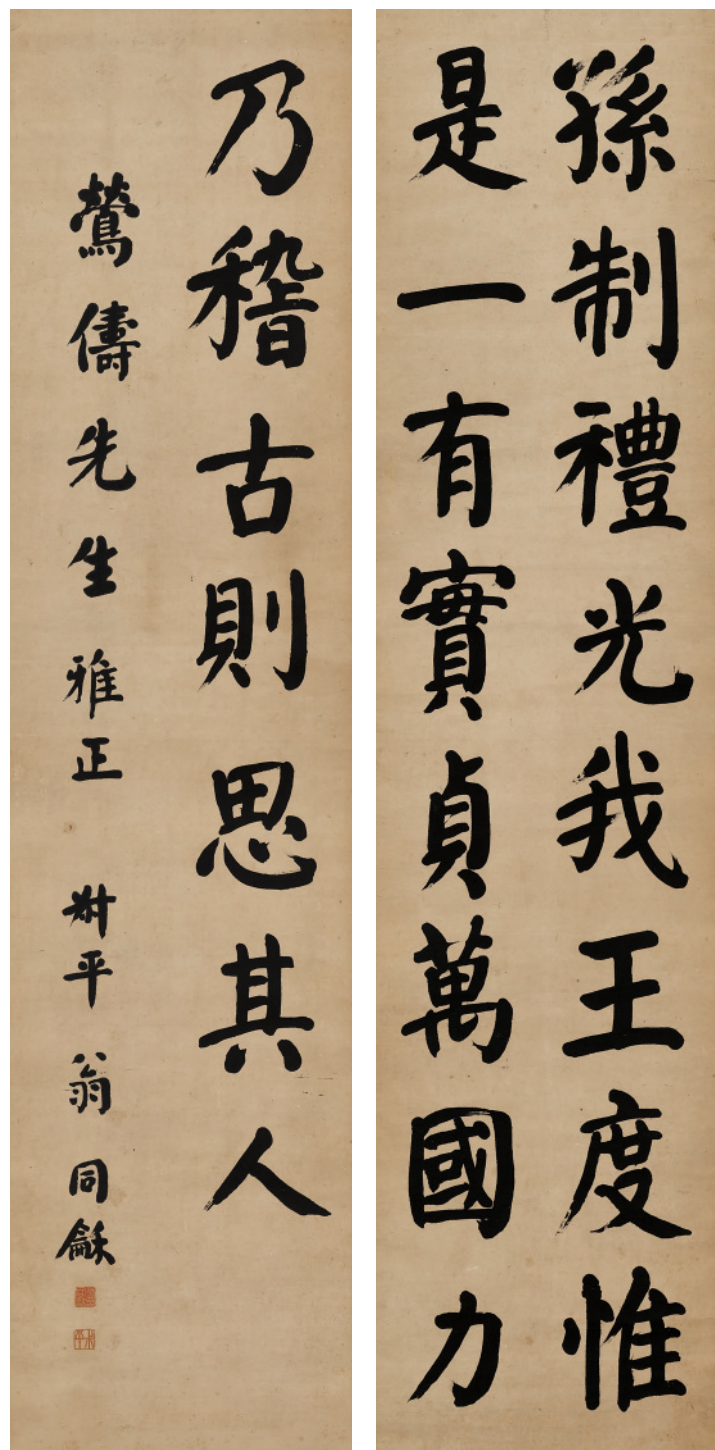 孫制禮光我王度惟
是一有實貞萬國力
乃稽古則思其人
鶯儔先生雅正
叔平翁同龢